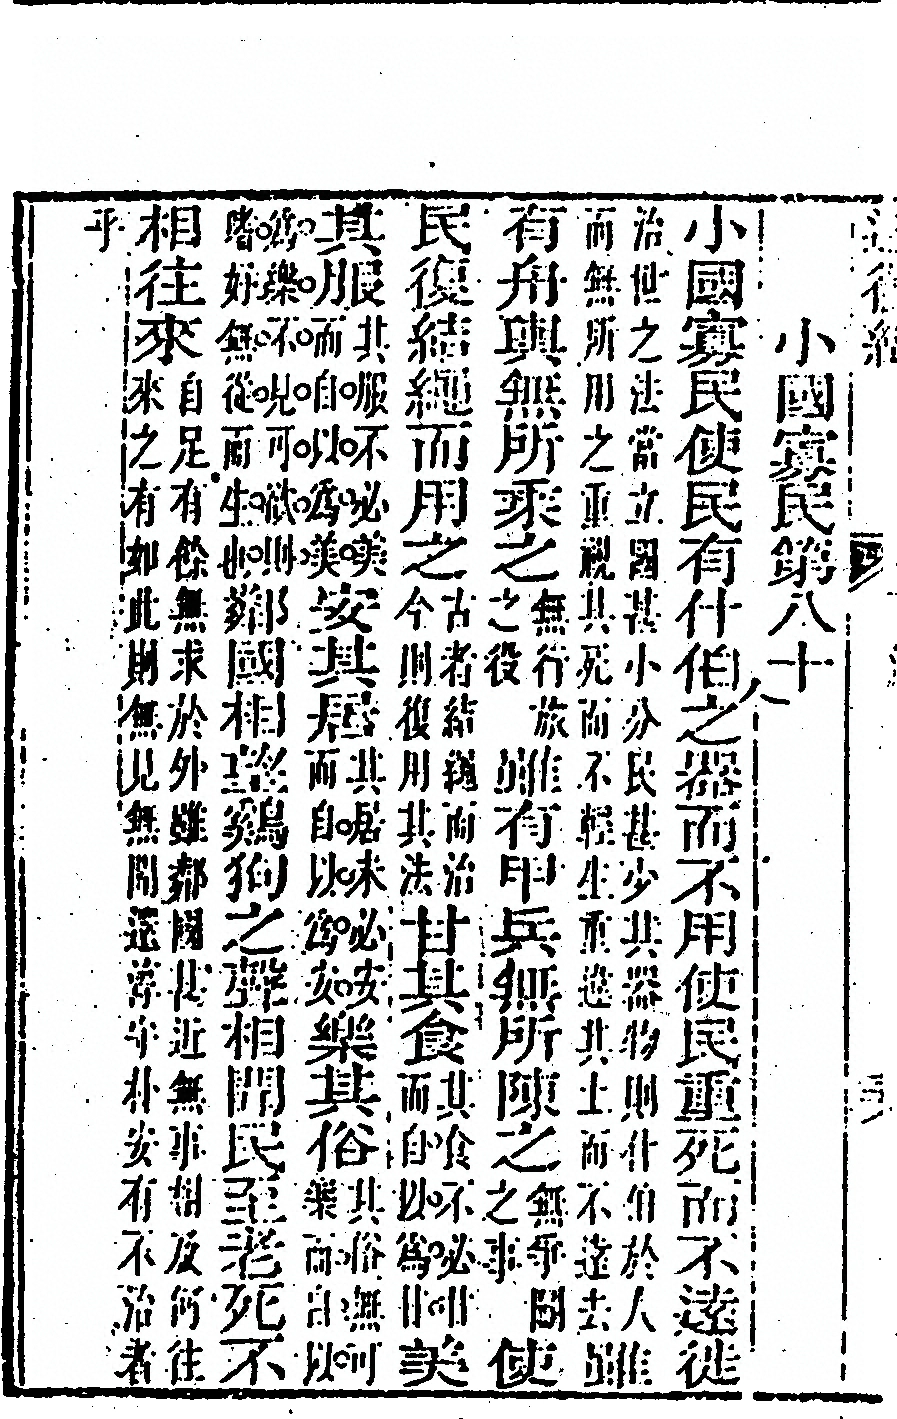 小國寡民第八十
小國寡民使民有什伯之器而不用使民重死而不遠徙
治世之法當立國甚小分民甚少其器物則什伯於人
而無所用之重視其死而不輕生重遷其土而不遠去雖
有舟輿無所乘之無行旅之役雖有甲兵無所陳之無爭鬬之事使
民復結繩而用之古者結繩而治今則復用其法甘其食其食不必甘而自以爲甘美
其服其服不必美而自以爲美安其居其居未必安而自以爲安樂其俗其俗無可樂而自以
爲樂不見可欲則嗜好無從而生也鄰國相望鷄狗之聲相聞民至老死不
相往來自足有餘無求於外雖鄰國甚近無事相及何往來之有如此則無見無聞還淳守朴安有不治者
乎